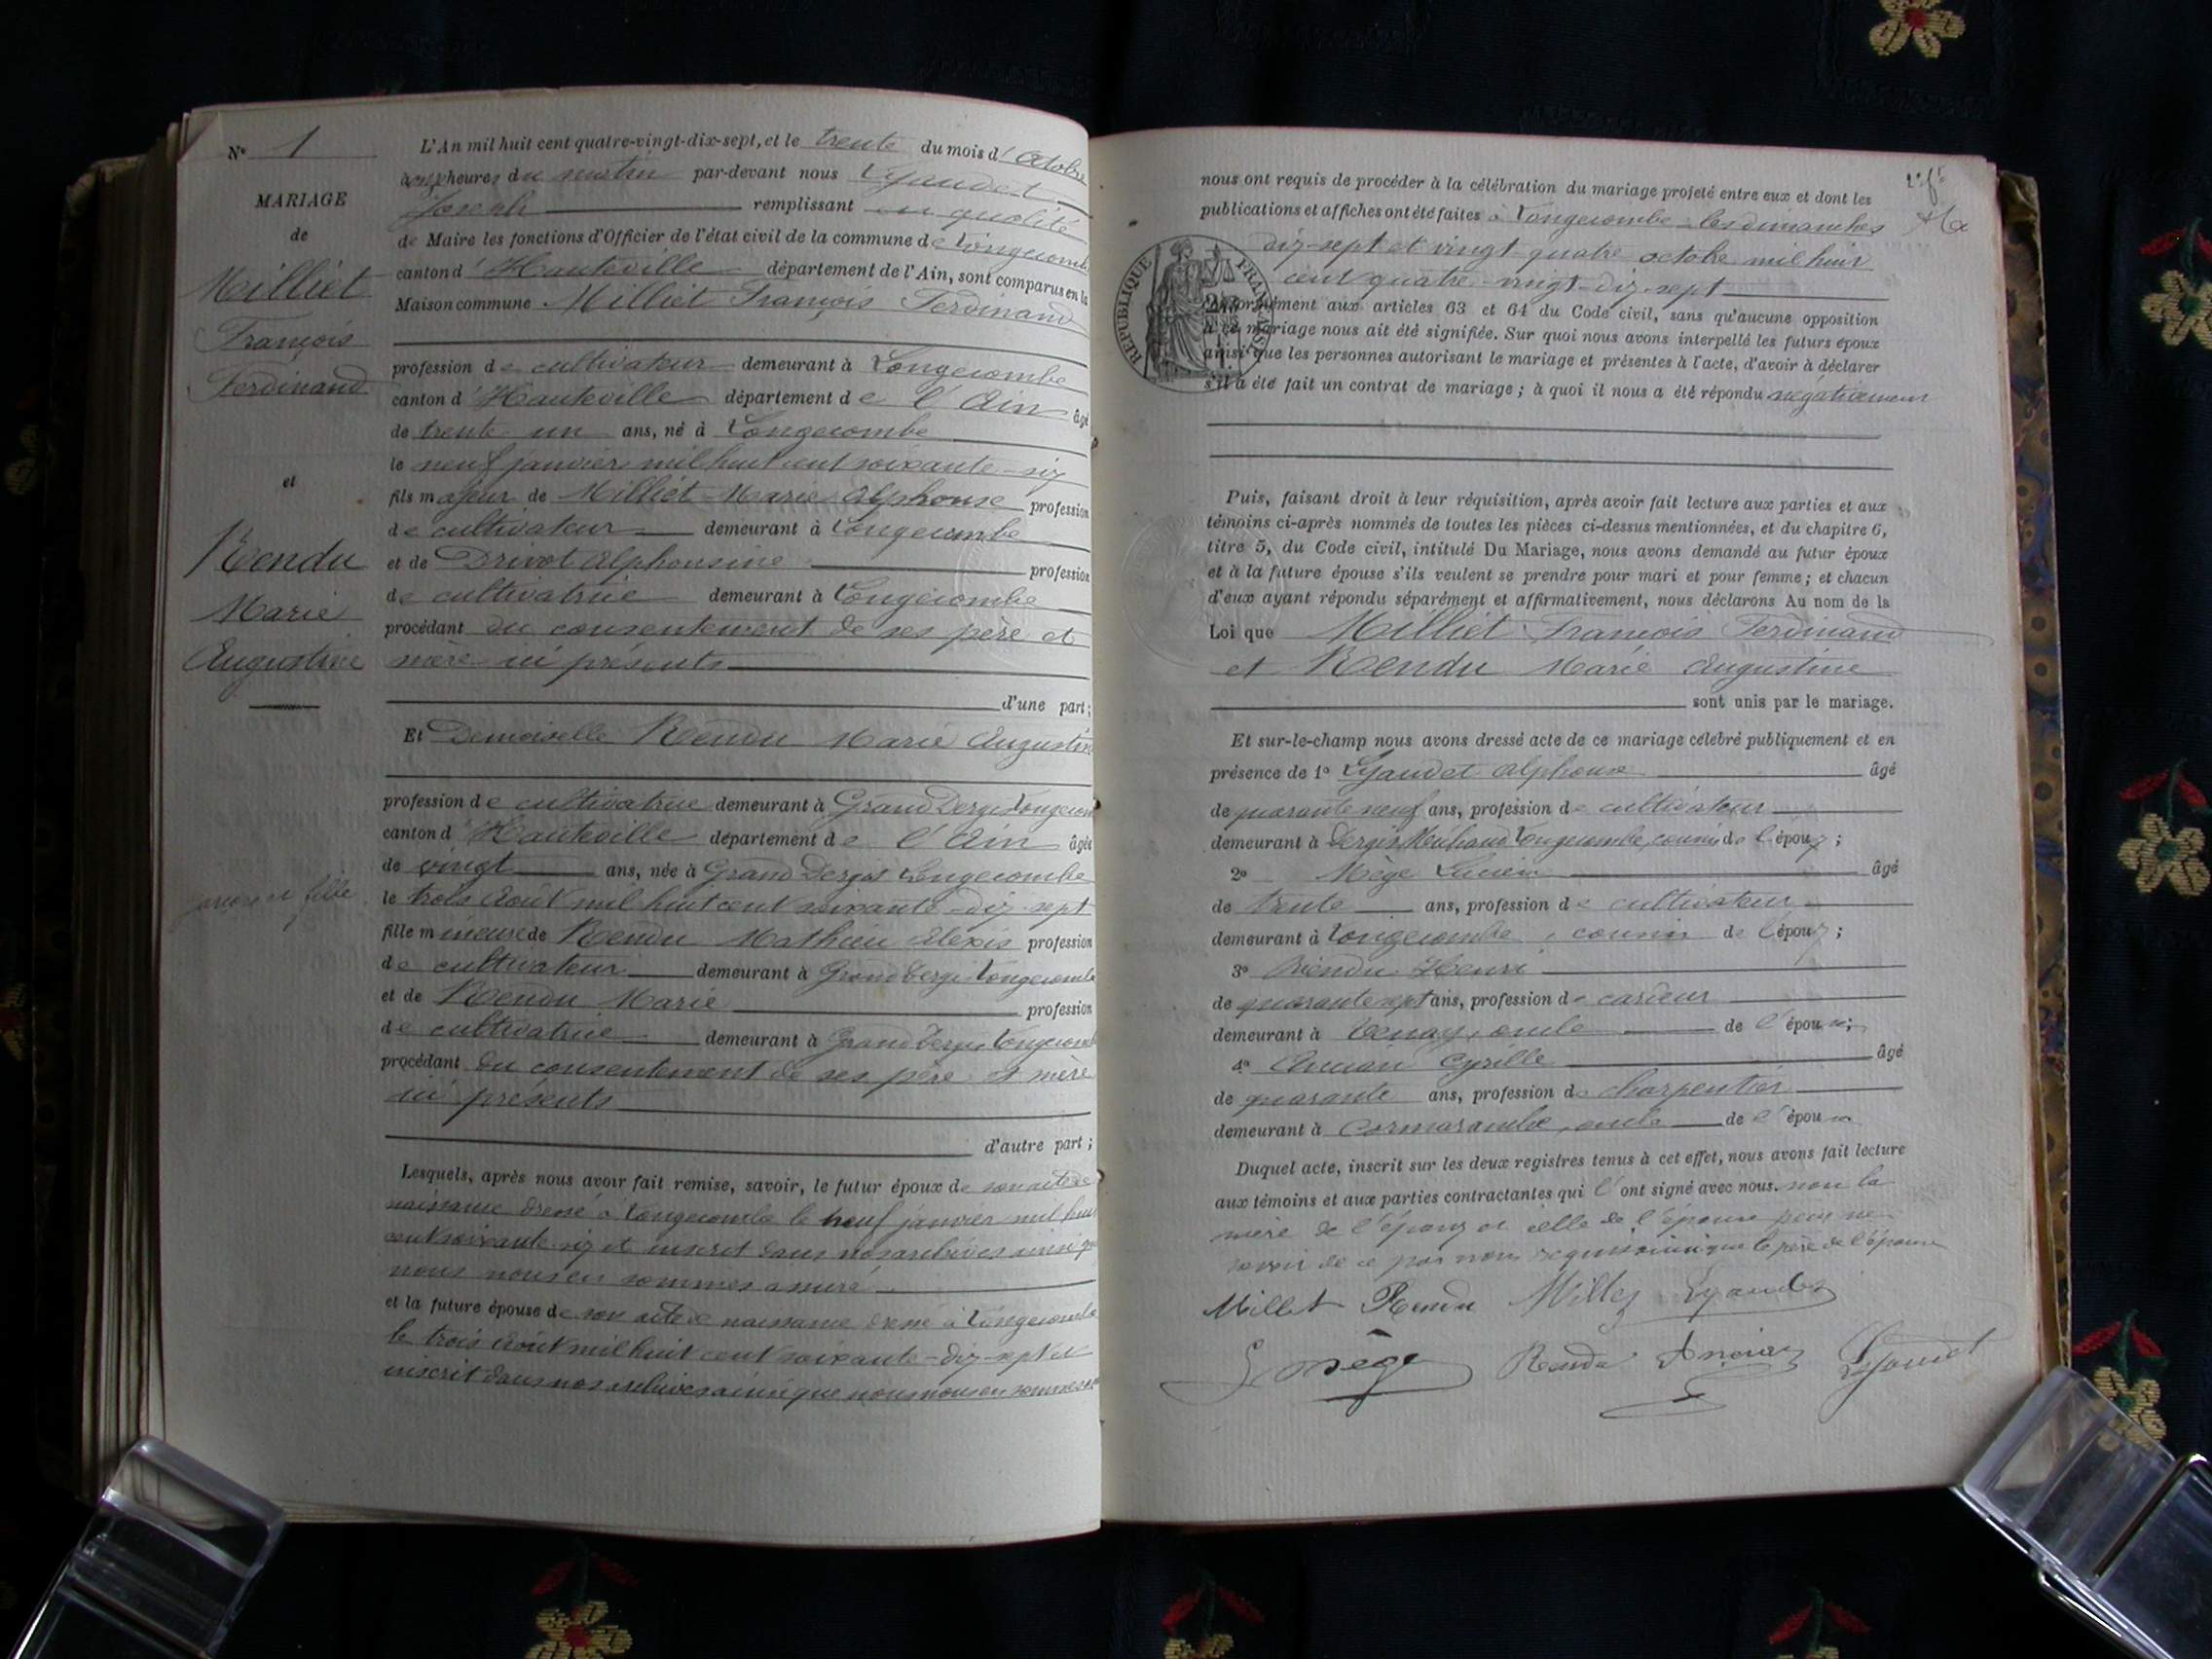 N° 1
MARIAGE
de
Milliet
François
Ferdinand
et
Rendu
Marie
Augustine
L'An mil huit cent quatre-vingt-dix-sept, et le trente du mois d'Octobre
heures du matin par-devant nous Lyaudet
Joseph remplissant en qualité
de Maire les fonctions d'Officier de l'état civil de la commune de Longecombe
canton d'Hauteville département de l'Ain, sont comparus en la
Maison commune. Milliet François Ferdinand
profession de cultivateur demeurant à Longecombe
canton d'Hauteville département de l'Ain âgé
de trente un ans, né à Longecombe
le neuf janvier mil huit cent soixante-six
fils majeur de Milliet Marie Alphonse profession
de cultivateur demeurant à Longecombe
et de Drivot Alphonsine profession
de cultivatrice demeurant à Longecombe
procédant du consentement de ses père et
mère ici présents
d'une part;
Et Demoiselle Rendu Marie Augustine
profession de cultivatrice demeurant à Grand Dergis Longecombe
canton d'Hauteville département de l'Ain âgée
de vingt ans, née à Grand Dergis Longecombe
le trois Août mil huit cent soixante-dix-sept
fille mineure de Rendu Mathieu Alexis profession
de cultivateur demeurant à Grand Dergis Longecombe
et de Rendu Marie profession
de cultivatrice demeurant à Grand Dergis Longecombe
procédant du consentement de ses père et mère
ici présents
d'autre part;
Lesquels, après nous avoir fait remise, savoir, le futur époux de son acte de
naissance dressé à Longecombe le neuf janvier mil huit
cent soixante-six et inscrit dans nos archives ainsi que
nous nous en sommes assuré
et la future épouse de son acte de naissance dressé à Longecombe
le trois Août mil huit cent soixante-dix-sept et
inscrit dans nos archives ainsi que nous nous en sommes
nous ont requis de procéder à la célébration du mariage projeté entre eux et dont les
publications et affiches ont été faites à Longecombe les dimanches
dix-sept et vingt quatre octobre mil huit
cent quatre-vingt-dix-sept
RÉPUBLIQUE FRANÇAISE
conformément aux articles 63 et 64 du Code civil, sans qu'aucune opposition
à ce mariage nous ait été signifiée. Sur quoi nous avons interpellé les futurs époux
ainsi que les personnes autorisant le mariage et présentes à l'acte, d'avoir à déclarer
s'il a été fait un contrat de mariage; à quoi il nous a été répondu négativement
Puis, faisant droit à leur réquisition, après avoir fait lecture aux parties et aux
témoins ci-après nommés de toutes les pièces ci-dessus mentionnées, et du chapitre 6,
titre 5, du Code civil, intitulé Du Mariage, nous avons demandé au futur époux
et à la future épouse s'ils veulent se prendre pour mari et pour femme; et chacun
d'eux ayant répondu séparément et affirmativement, nous déclarons Au nom de la
Loi que Milliet François Ferdinand
et Rendu Marie Augustine
sont unis par le mariage.
Et sur-le-champ nous avons dressé acte de ce mariage célébré publiquement et en
présence de 1° Lyaudet Alphonse âgé
de quarante neuf ans, profession de cultivateur
demeurant à Dergis Longecombe, cousin de l'époux;
2° Mège Lucien âgé
de trente ans, profession de cultivateur
demeurant à Longecombe, cousin de l'époux;
3° Rendu Henri
de quarante sept ans, profession de cardeur
demeurant à Tenay, oncle de l'épouse;
4° Ancian Cyrille âgé
de quarante ans, profession de charpentier
demeurant à Cormaranche, oncle de l'épouse
Duquel acte, inscrit sur les deux registres tenus à cet effet, nous avons fait lecture
aux témoins et aux parties contractantes qui l'ont signé avec nous. non la
mère de l'époux et celle de l'épouse pour ne
savoir de ce par nous requis ainsi que le père de l'épouse
Milliet Rendu Millet Lyaudet
L Mège Rendu Ancian Lyaudet